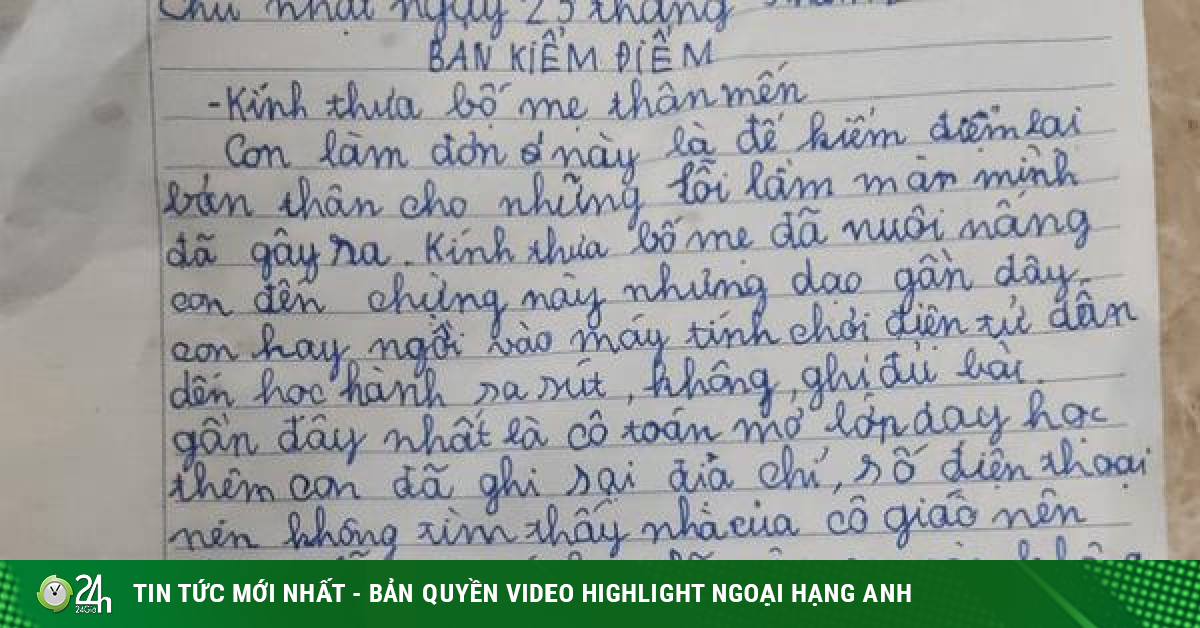 Chủ nhật ngày 25 tháng
BẢN KIỂM ĐIỂM
-Kính thưa bố mẹ thân mến
Con làm đơn này là để kiểm điểm lại
bản thân cho những lỗi lầm màn mình
đã gây ra. Kính thưa bố mẹ đã nuôi nấng
con đến chừng này nhưng dạo gần đây
con hay ngồi vào máy tính chơi điện tử dẫn
đến học hành sa sút, không, ghi đủ bài.
gần đây nhất là cô toán mở lớp dạy học
thêm con đã ghi sai địa chỉ, số điện thoại
nên không tìm thấy nhà của cô giáo nên
24h
24Giờ
TIN TỨC MỚI NHẤT - BẢN QUYỀN VIDEO HIGHLIGHT NGOẠI HẠNG ANH